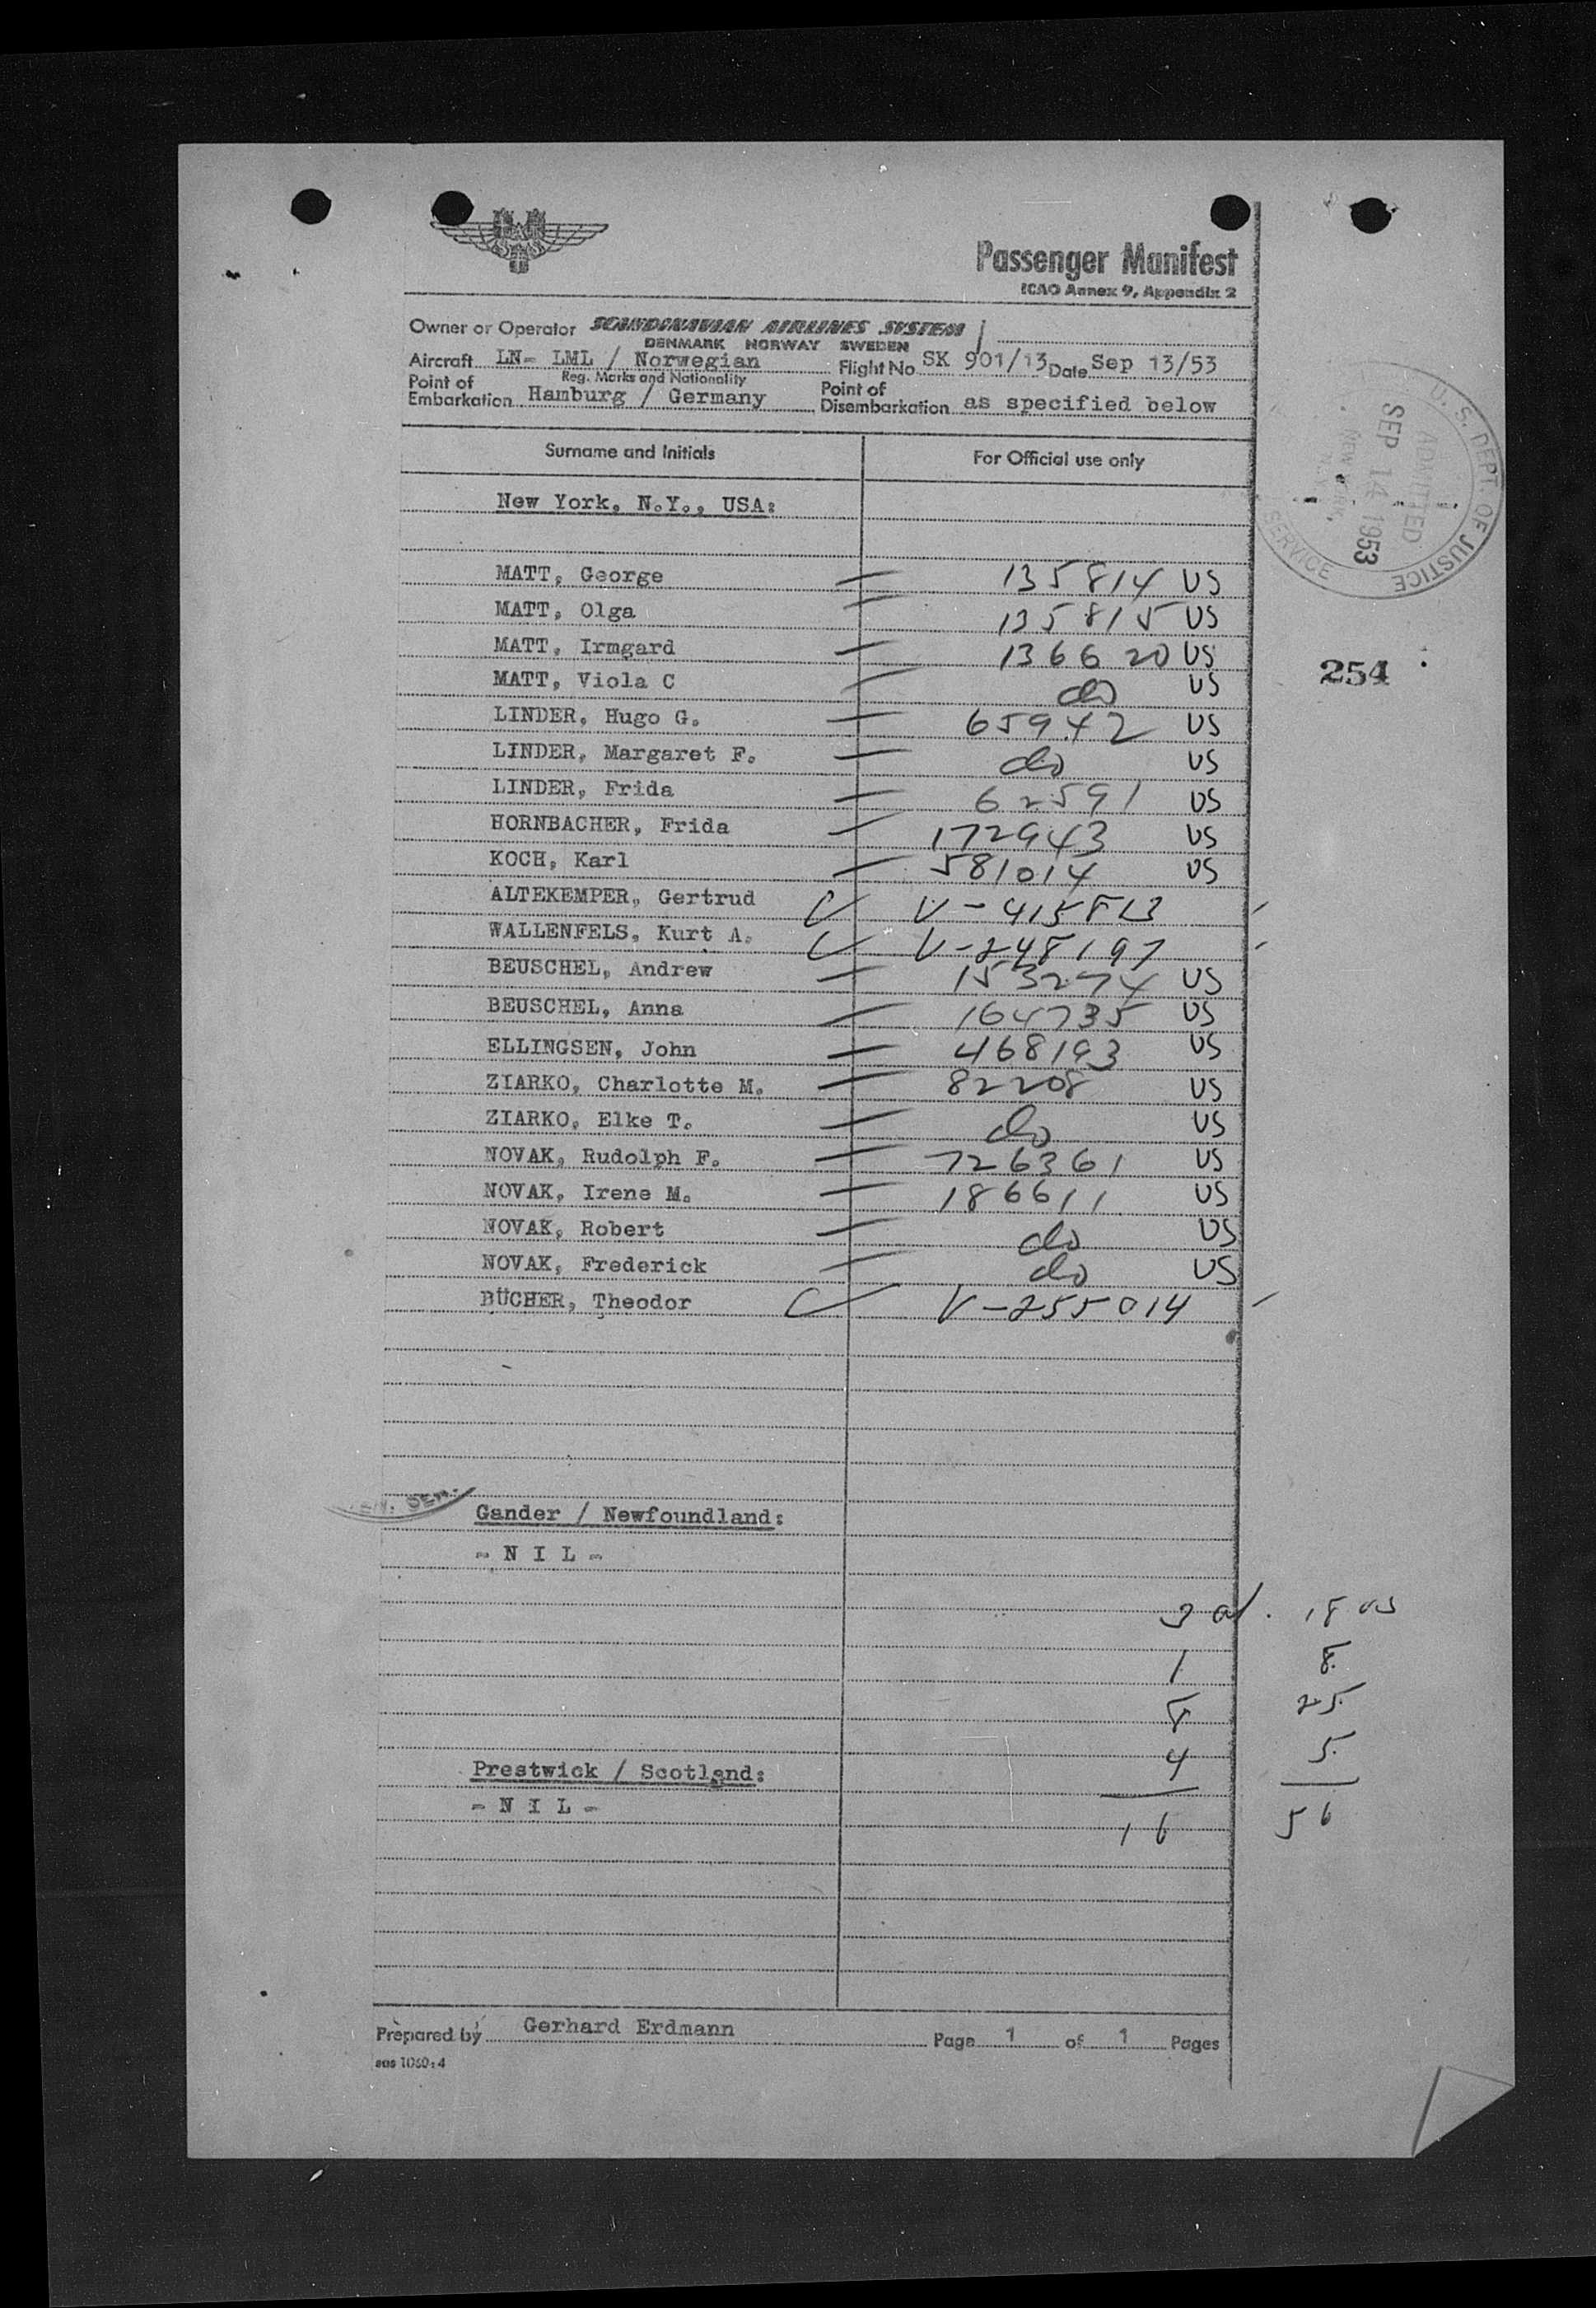 Passenger Manifest
ICAO Annex 9, Appendix 2
Owner or Operator SCANDINAVIAN AIRLINES SYSTEM
DENMARK NORWAY SWEDEN
Aircraft LN- LML / Norwegian Flight No. SK 901/13 Date Sep 13/53
Reg. Marks and Nationality
Point of Embarkation Hamburg / Germany Point of Disembarkation as specified below
Surname and Initials For Official use only
New York, N.Y., USA:
MATT, George 135814 US
MATT, Olga 135815 US
MATT, Irmgard 136620 US
MATT, Viola C do US
LINDER, Hugo G. 65942 US
LINDER, Margaret F. do US
LINDER, Frida 62591 US
HORNBACHER, Frida 172943 US
KOCH, Karl 581014 US
ALTEKEMPER, Gertrud V-415813
WALLENFELS, Kurt A. V-248197
BEUSCHEL, Andrew 153274 US
BEUSCHEL, Anna 164735 US
ELLINGSEN, John 468193 US
ZIARKO, Charlotte M. 82208 US
ZIARKO, Elke T. do US
NOVAK, Rudolph F. 726361 US
NOVAK, Irene M. 186611 US
NOVAK, Robert do US
NOVAK, Frederick do US
BÜCHER, Theodor V-255014
U. S. DEPT. OF JUSTICE
ADMITTED
SEP 14 1953
NEW YORK, N.Y.
SERVICE
254
Gander / Newfoundland:
- N I L -
3 al. 18 US
1 8
8 25
4 5
Prestwick / Scotland:
- N I L -
16 56
Prepared by Gerhard Erdmann Page 1 of 1 Pages
sas 1060:4